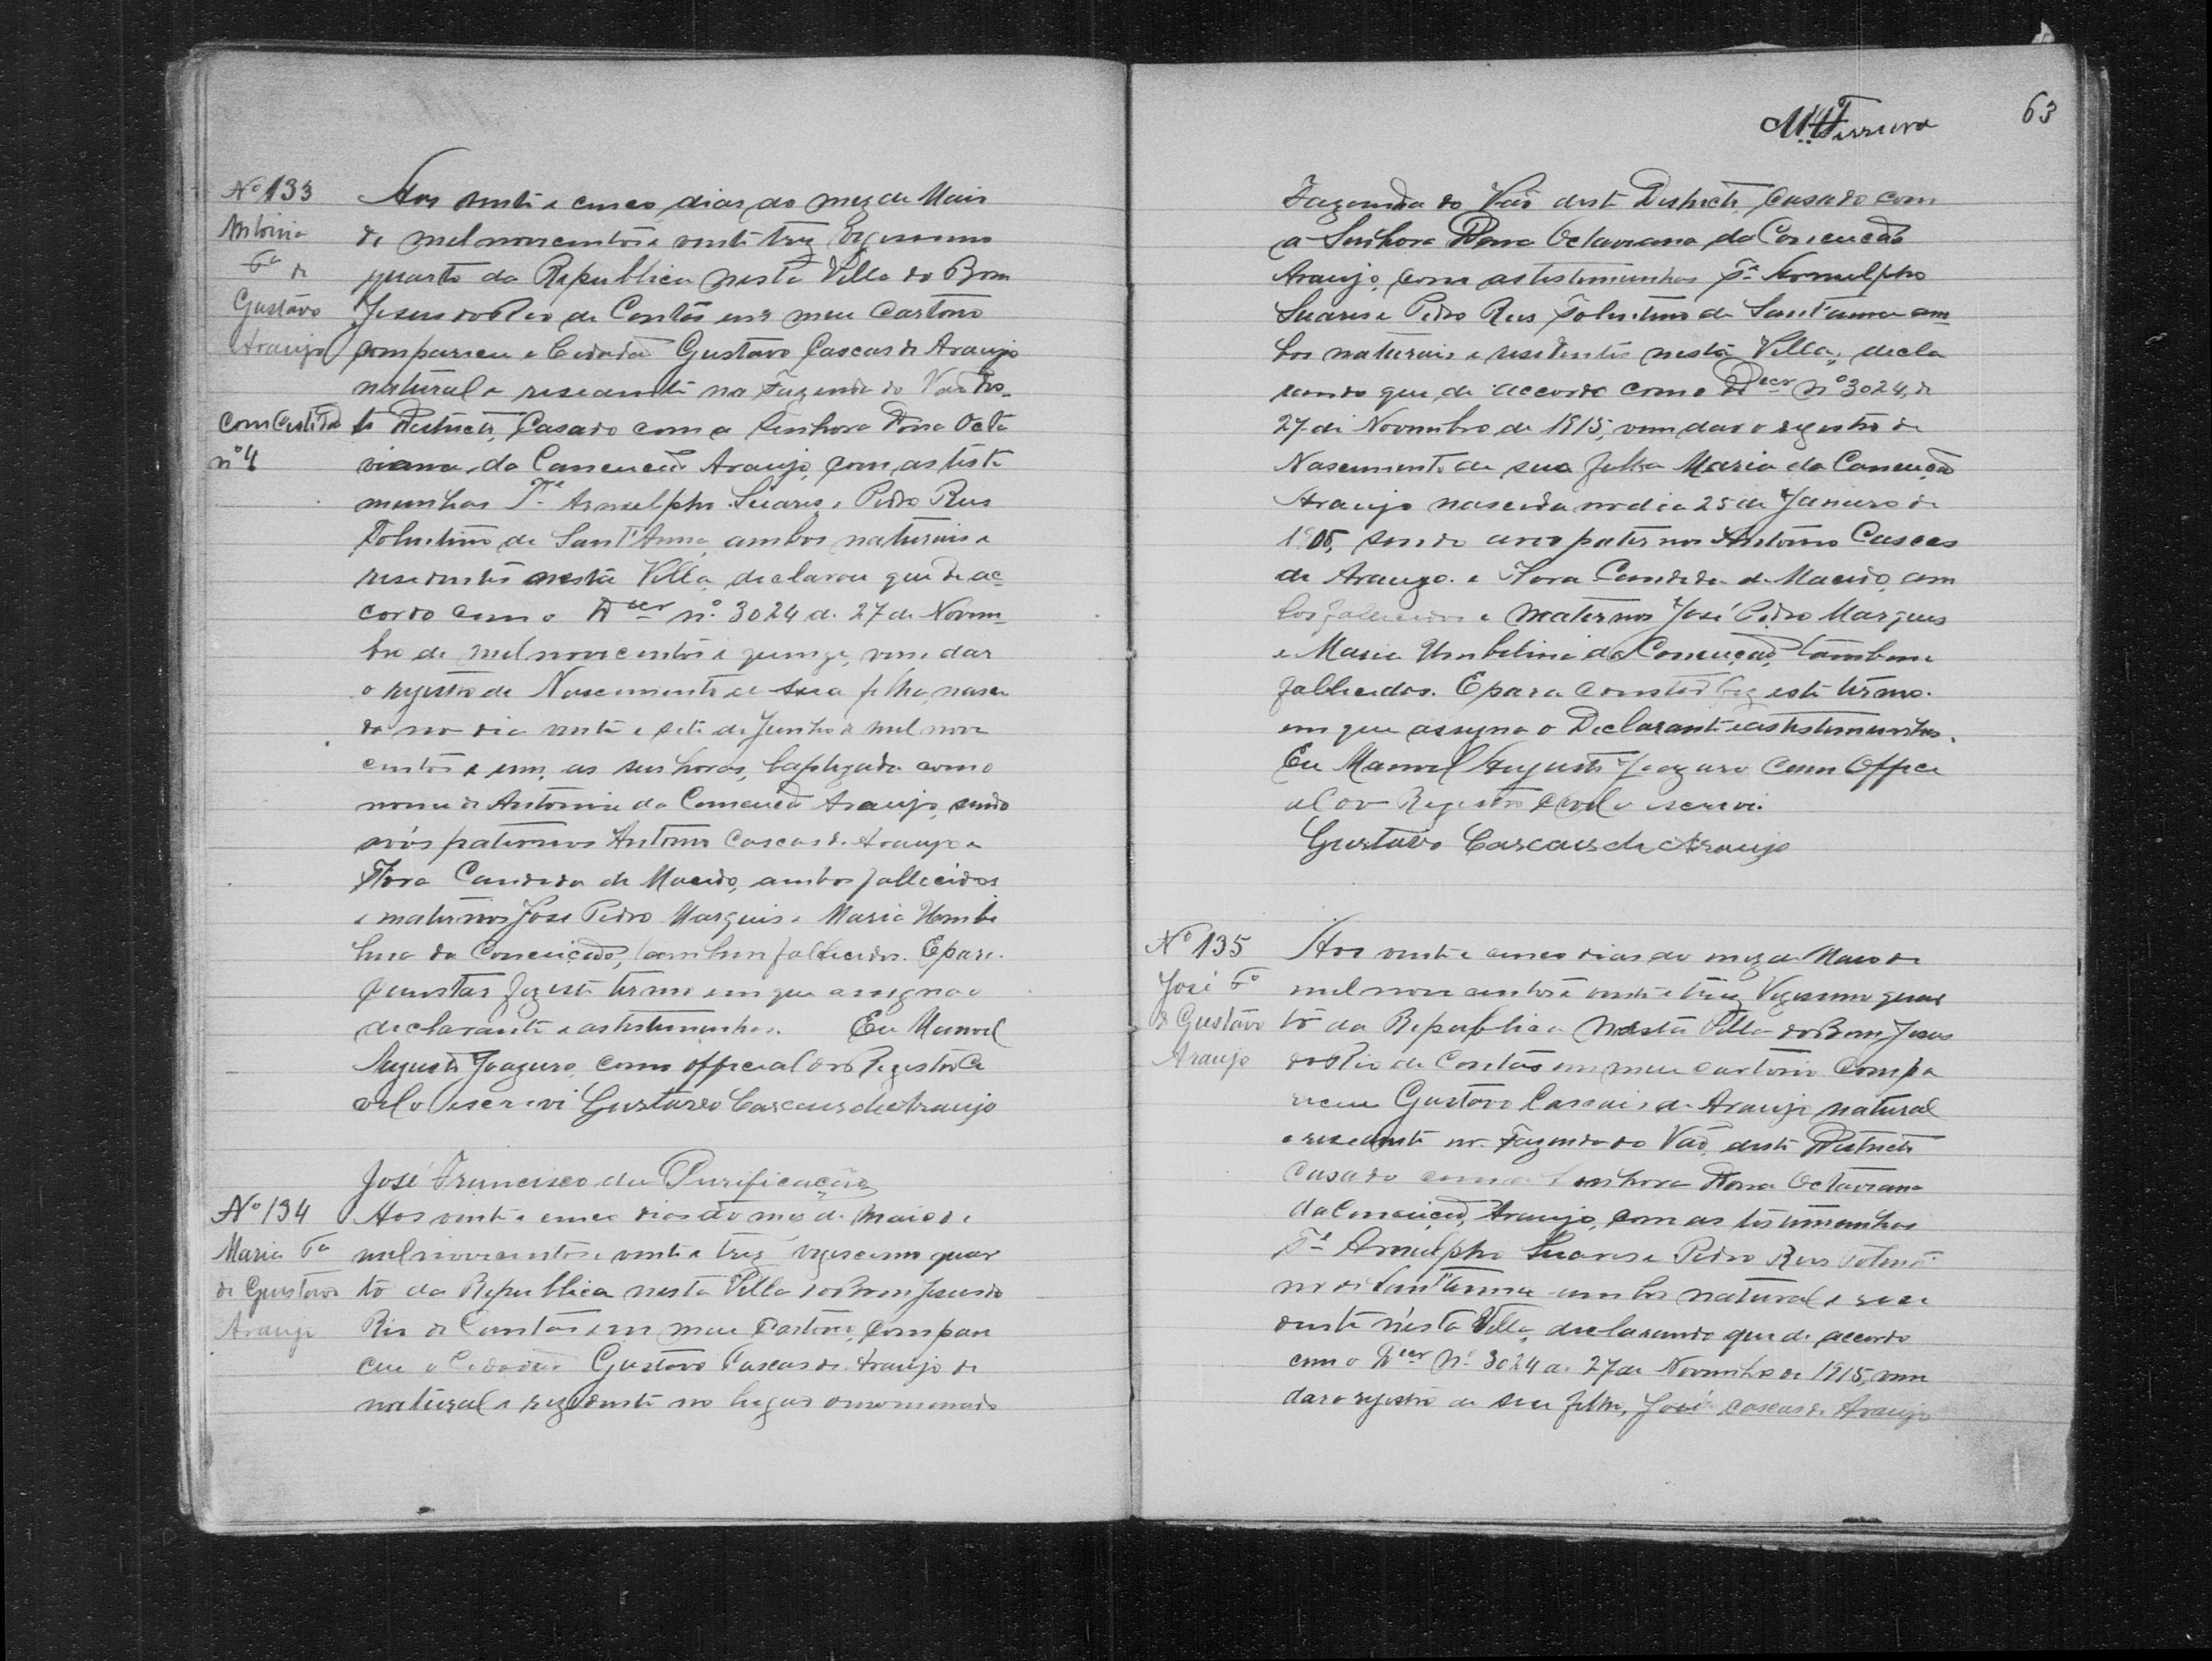 Nº 133
Antonia
fª de
Gustavo
Araujo
Com Certidão
nº 4
Aos vinte e cinco dias do mez de Maio
de mil novecentos e vinte trez Vigesimo
quarto da Republica nesta Villa do Bom
Jesus do Rio de Contas em meu Cartorio
compareceu o Cidadão Gustavo Cascas de Araujo
natural e residente na Fazenda do Vao des
te Districto, Casado com a Senhora Dona Octa
viana da Conceicão Araujo, com as teste
munhas Te Arnulpho Suares e Pedro Reis
Tolentino de Sant'Anna, ambos naturais e
residentes nesta Villa, declarou que de ac
cordo com o Decr nº 3024 de 27 de Novem
bro de mil novecentos e quinze, vem dar
o registro de Nascimento de sua filha, nasci
da no dia vinte e sete de Junho de mil nove
centos e um, as seis horas, baptizada com o
nome de Antonia da Conceicão Araujo, sendo
avós paternos Antonio Cascas de Araujo e
Flora Candida de Macedo, ambos fallecidos
e maternos José Pedro Marques e Maria Umbe
lina da Conceicão, tambem fallecidos. E para
constar fiz este termo em que assigna o
declarante e as testemunhas. Eu Manoel
Augusto Joazeiro, como official do Registro Ci
vel o escrevi Gustavo Cascaes de Araujo
José Francisco da Purificação
Nº 134
Maria fª
de Gustavo
Araujo
Aos vinte e cinco dias do mes de Maio de
mil novecentos e vinte e trez vigesimo quar
to da Republica nesta Villa do Bom Jesus do
Rio de Contas em meu Cartorio, compare
ceu o Cidadão Gustavo Cascas de Araujo de
natural e rezidente no lugar denominado
M. Ferreira
63
Fazenda do Vão deste Districto, Casado com
a Senhora Dona Octaviana da Conceicão
Araujo, com as testemunhas Te Arnulpho
Suares e Pedro Reis Tolentino de Sant'anna am
bos naturais e residentes nesta Villa, decla
rando que de accordo com o Decr nº 3024, de
27 de Novembro de 1915, vem dar o registro de
Nascimento de sua filha Maria da Conceição
Araujo nascida no dia 25 de Janeiro de
1905, sendo avos paternos Antonio Cascas
de Araujo e Flora Candida de Macedo, am
bos fallecidos e maternos José Pedro Marques
e Maria Umbelina da Conceição, tambem
fallecidos. E para constar fiz este termo
em que assigna o Declarante e as testemunhas.
Eu Manoel Augusto Joazeiro Como Offici
al do Registro Civel o escrevi.
Gustavo Cascaes de Araujo
Nº 135
José fº
de Gustavo
Araujo
Aos vinte e cinco dias do mez de Maio de
mil novecentos e vinte e trez Vigesimo quar
to da Republica nesta Villa do Bom Jesus
do Rio de Contas em meu cartorio compa
receu Gustavo Cascais de Araujo natural
e residente na Fazenda do Vão, deste Districto
Casado com a Senhora Dona Octaviana
da Conceição, Araujo, com as testemunhas
Te Arnulpho Suares e Pedro Reis Tolenti
no de Sant'anna ambos natural e resi
dente nesta Villa, declarando que de accordo
com o Decr Nº 3024 de 27 de Novembro de 1915, vem
dar o registro de seu filho, José Cascas de Araujo